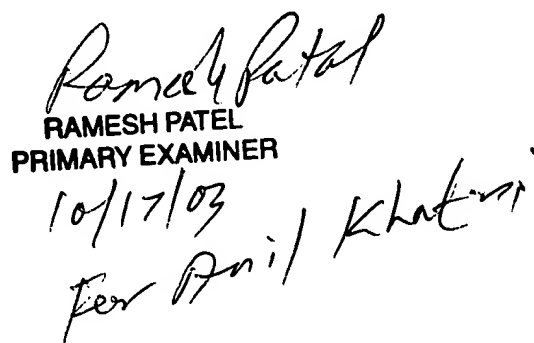 Ramesh Patel
RAMESH PATEL
PRIMARY EXAMINER
10/17/03
For Anil Khatri